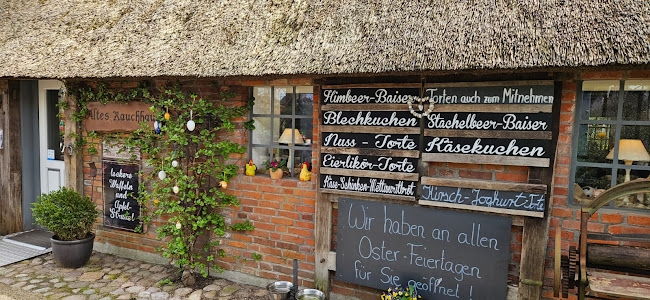 Altes Rauchhaus
lockere
Waffeln
und
Apfel-
Strudel
Himbeer-Baiser
Blechkuchen
Nuss-Torte
Eierlikör-Torte
Käse-Schinken-Waffel
Torten auch zum Mitnehmen
Stachelbeer-Baiser
Käsekuchen
Kirsch-Joghurt
Wir haben an allen
Oster-Feiertagen
für Sie geöffnet!